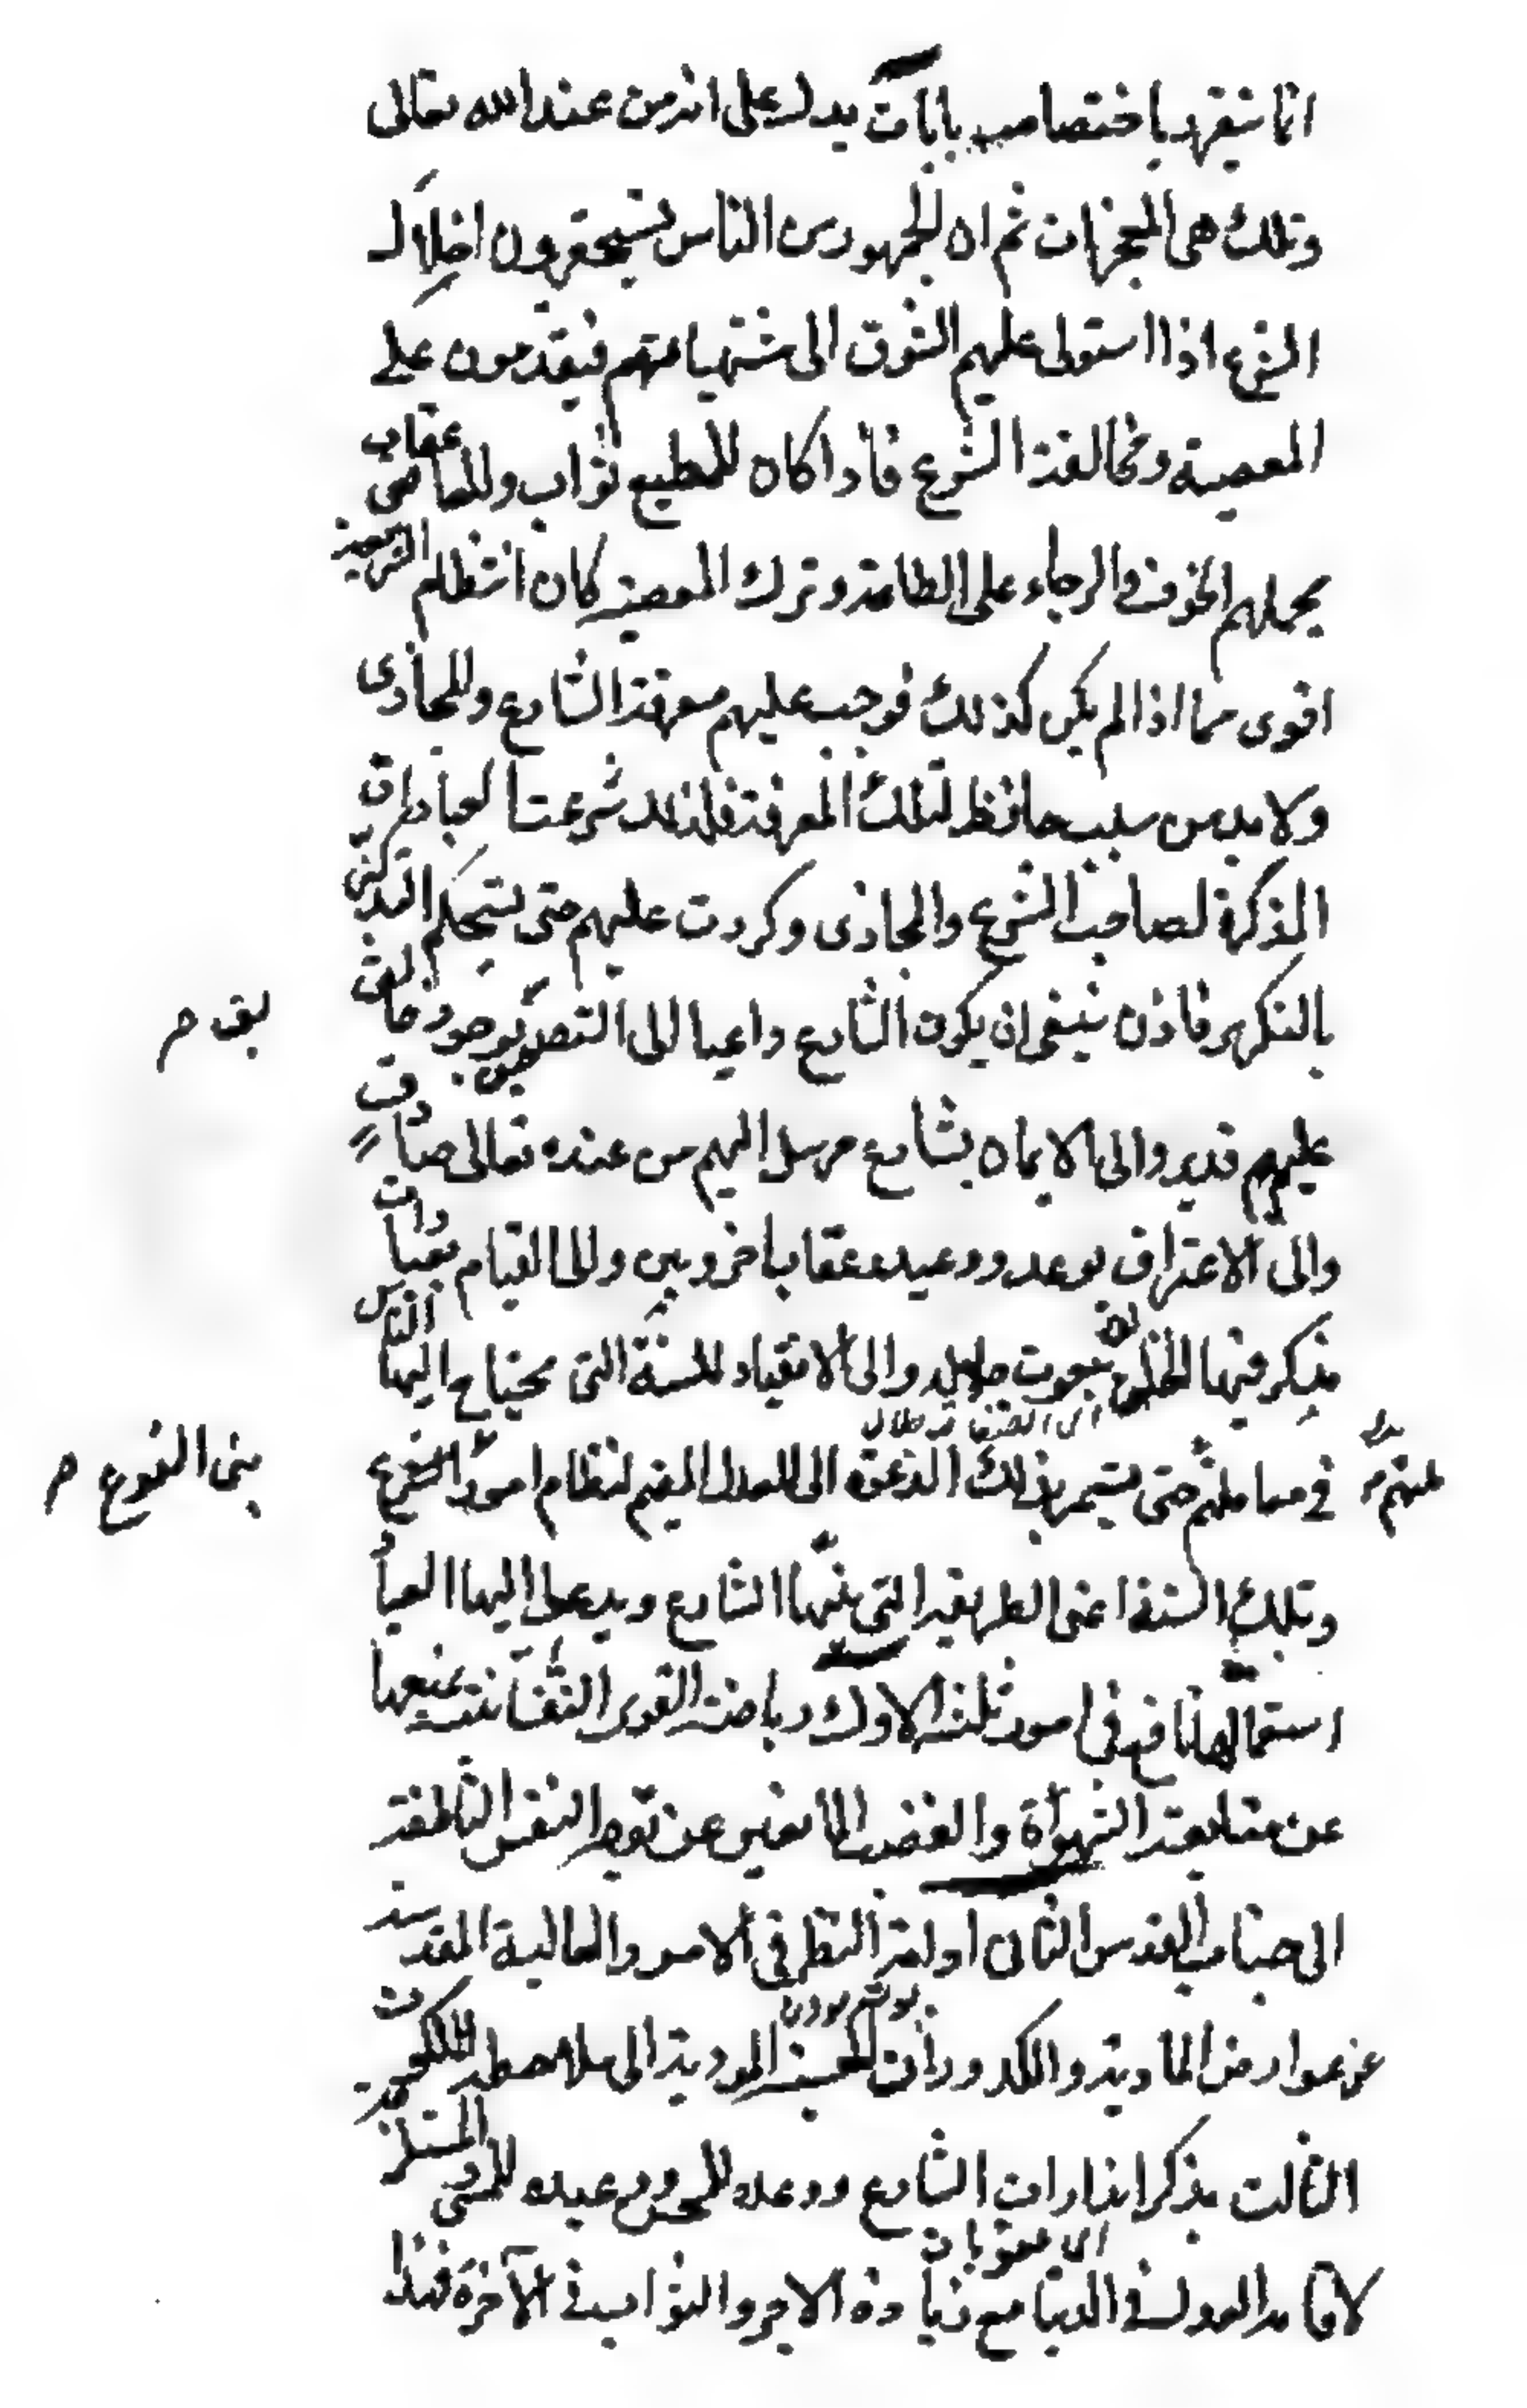 انما يتقرر باختصاصه بايات يدل على انه من عند الله تعالى
وتلك هي المعجزات ثم ان الجمهور من الناس يستحقرون اختلال
الشرع اذا استولى عليهم الشوق الى مشتهياتهم فيقدمون على
المعصية ومخالفة الشرع فاذا كان للمطيع ثواب وللعاصي عقاب
يحملهم الخوف والرجاء على الطاعة وترك المعصية كان انتظام الشريعة
اقوى مما اذا لم يكن كذلك فوجب عليهم معرفة الشارع والمجازى
ولا بد من سبب حافظ لتلك المعرفة فلذلك شرعت العبادات
المذكرة لصاحب الشرع والمجازى وكررت عليهم حتى يستحكم التذكر
بالتكرير فاذن ينبغي ان يكون الشارع داعيا الى التصديق بوجود خالق
عليم قدير والى الايمان بشارع مرسل اليهم من عنده تعالى صادق
والى الاعتراف بوعد ووعيد وعقاب اخرويين والى القيام بعبادات
يذكر فيها الخالق بنعوت جلاله والى الانقياد للسنة التي يحتاج اليها الناس
في معاملاتهم حتى يستمر بذلك الدعوة الى العدل المقيم لنظام امور النوع
بنى النوع م
وتلك السنة اعنى الطريقة التي سنها الشارع ويدعو اليها العباد
استعمالها نافع في امور ثلثة الاول رياضة القوى النفسانية بمنعها
عن متابعة الشهوة والغضب المانعين عن توجه النفس الناطقة
الى جناب القدس الثاني ادامة النظر في الامور العالية المقدسة
عن عوارض المادية والكدورات الحسية المودية الى ملاحظة الملكوت
الثالث تذكر انذارات الشارع ووعده للمحسن ووعيده للمسىء المستلزمة
اى عقوبات
لاقامة العدل في الدنيا مع زيادة الاجر والثواب في الآخرة فهذا